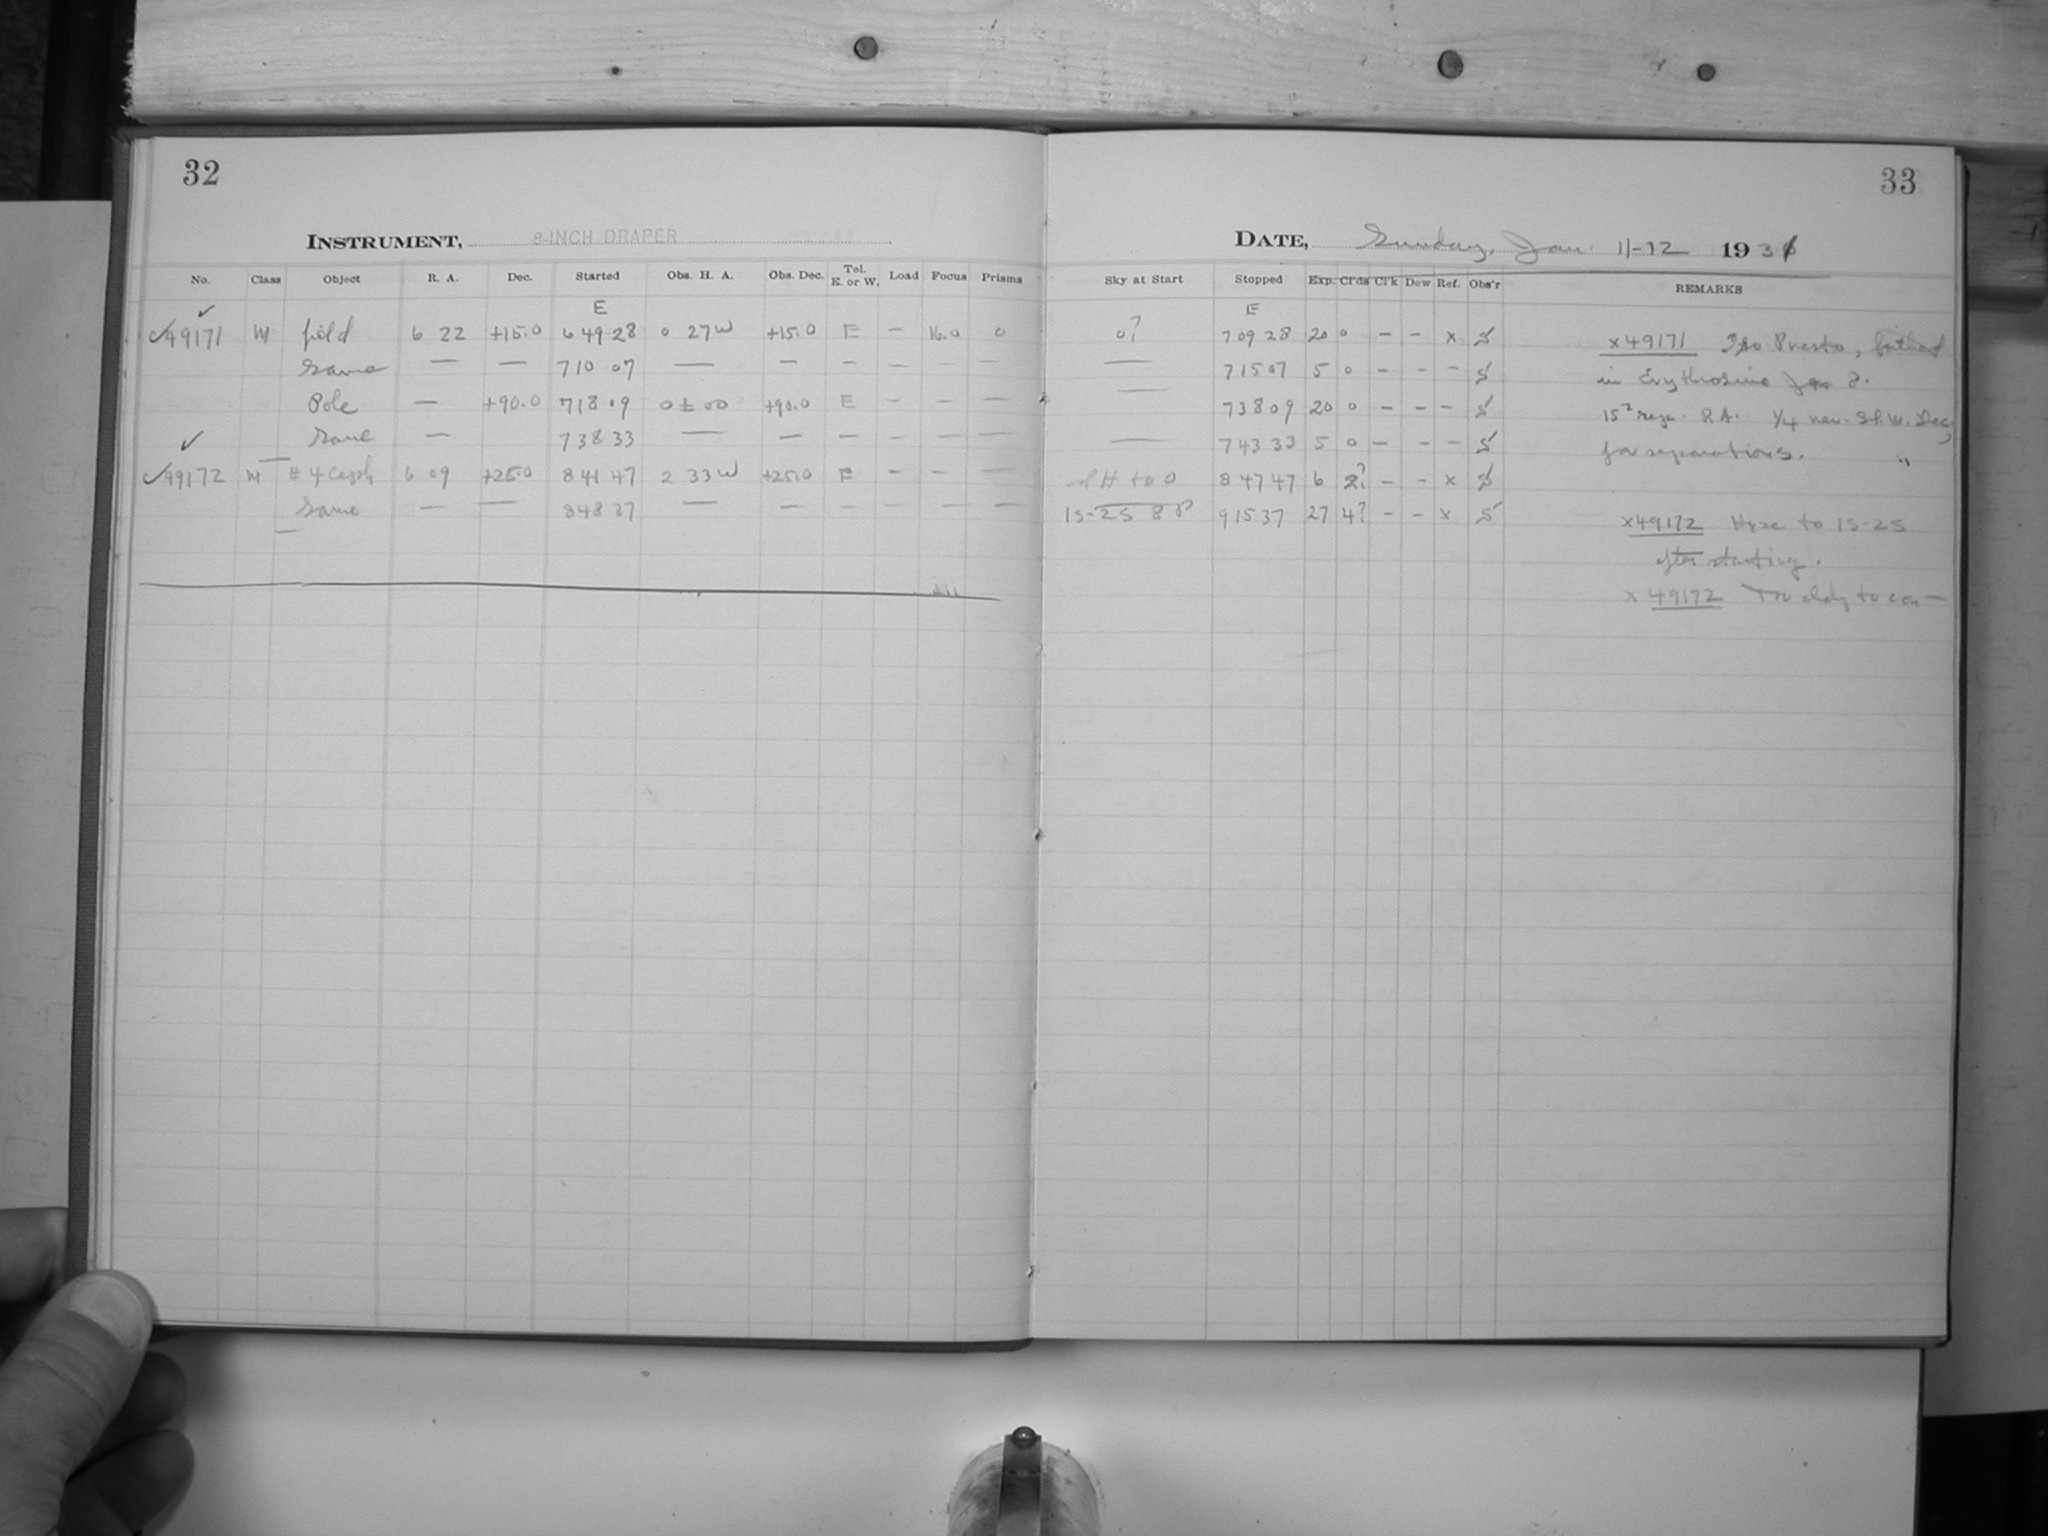 32
INSTRUMENT, 8-INCH DRAPER
No. Class Object R. A. Dec. Started Obs. H. A. Obs. Dec. Tel. E. or W. Load Focus Prisms
E
✓49171 M field 6 22 +15.0 6 49 28 0 27 W +15.0 E — 16.0 0
Same — — 7 10 07 — — — — — —
Pole — +90.0 7 18 09 0 ± 00 +90.0 E — — —
Same — 7 38 33 — — — — — —
✓49172 M # 4 6 09 +25.0 8 41 47 2 33 W +25.0 E — — —
Same — — 8 48 37 — — — — — —
33
DATE, Sunday, Jan. 11-12 1931
Sky at Start Stopped Exp. Cl'ds Cl'k Dew Ref. Obs'r REMARKS
E
0? 7 09 28 20 0 — — x S x49171 Iso Presto, bathed
— 7 15 07 5 0 — — — S in Erythrosine Jan 8.
— 7 38 09 20 0 — — — S R.A. 1/4 Dec,
— 7 43 33 5 0 — — — S for separations.
8 47 47 6 2? — — x S
1S-2S 8 P 9 15 37 27 4? — — x S x49172 Haze to 1S-2S
after starting.
x 49172 Too cldy to con—